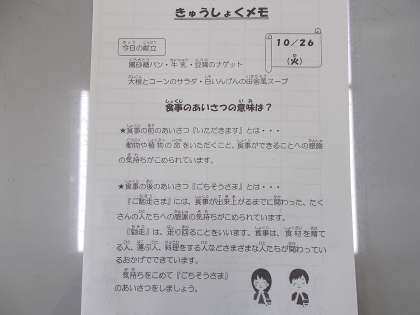 きゅうしょくメモ
今日の献立
10/26
(火)
黒砂糖パン・牛乳・豆腐のナゲット
大根とコーンのサラダ・白いんげんの田舎風スープ
食事のあいさつの意味は?
★食事の前のあいさつ『いただきます』とは・・・
動物や植物の命をいただくこと、食事ができることへの感謝
の気持ちがこめられています。
★食事の後のあいさつ『ごちそうさま』とは・・・
『ご馳走さま』には、食事が出来上がるまでに関わった、たく
さんの人たちへの感謝の気持ちがこめられています。
『馳走』は、走り回ることをいいます。食事は、食材を育て
る人、運ぶ人、料理をする人などさまざまな人たちが関わってい
るおかげでできています。
気持ちをこめて『ごちそうさま』
のあいさつをしましょう。